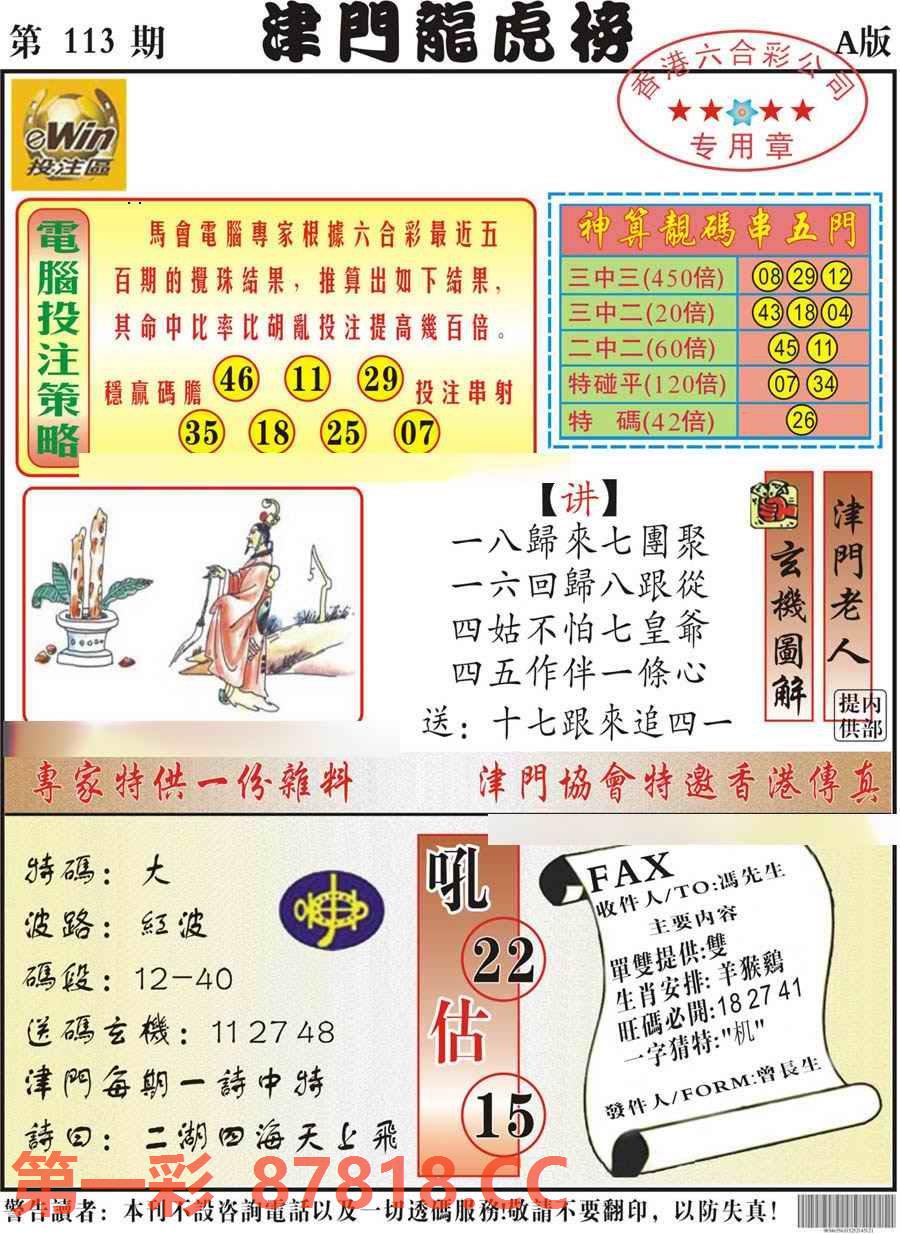 第 113 期
津門龍虎榜
A版
香港六合彩公司
专用章
eWin
投注區
電腦投注策略
馬會電腦專家根據六合彩最近五
百期的攪珠結果，推算出如下結果，
其命中比率比胡亂投注提高幾百倍。
穩贏碼膽 46 11 29 投注串射
35 18 25 07
神算靚碼串五門
三中三(450倍) 08 29 12
三中二(20倍) 43 18 04
二中二(60倍) 45 11
特碰平(120倍) 07 34
特 碼(42倍) 26
【讲】
一八歸來七團聚
一六回歸八跟從
四姑不怕七皇爺
四五作伴一條心
送：十七跟來追四一
玄機圖解
津門老人
内部提供
專家特供一份雜料
津門協會特邀香港傳真
特碼：大
波路：紅波
碼段：12—40
送碼玄機：11 27 48
津門每期一詩中特
詩曰：二湖四海天上飛
吼
22
估
15
FAX
收件人/TO:馮先生
主要内容
單雙提供:雙
生肖安排:羊猴鷄
旺碼必開:18 27 41
一字猜特:"机"
發件人/FORM:曾長生
第一彩 87818.CC
警告讀者：本刊不設咨詢電話以及一切透碼服務!敬請不要翻印，以防失真!